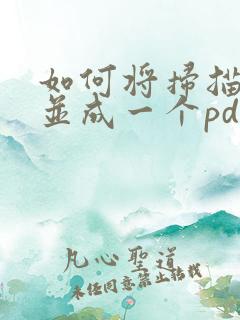 如何将掃描
並成一个pd
凡心聖道
未经同意禁止转载